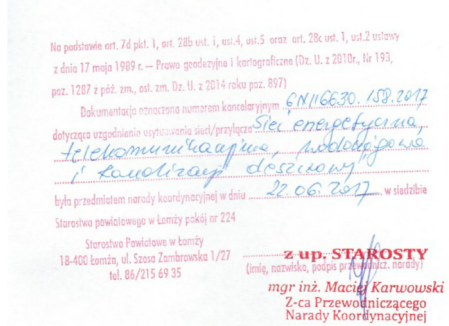 Na podstawie art. 7d pkt. 1, art. 28b ust. 1, ust.4, ust.5 oraz art. 28c ust. 1, ust.2 ustawy
z dnia 17 maja 1989 r. – Prawo geodezyjne i kartograficzne (Dz. U. z 2010r., Nr 193,
poz. 1287 z póź. zm., ost. zm. Dz. U. z 2014 roku poz. 897)
Dokumentacja oznaczona numerem kancelaryjnym GNII6630.158.2017
dotycząca uzgodnienia usytuowania sieci/przyłącza Sieci energetyczna,
telekomunikacyjna, wodociągowa
i kanalizacji deszczowej"
była przedmiotem narady koordynacyjnej w dniu 22.06.2017 w siedzibie
Starostwa powiatowego w Łomży pokój nr 224
Starostwo Powiatowe w Łomży
18-400 Łomża, ul. Szosa Zambrowska 1/27
tel. 86/215 69 35
z up. STAROSTY
(imię, nazwisko, podpis przewodnicz. narady)
mgr inż. Maciej Karwowski
Z-ca Przewodniczącego
Narady Koordynacyjnej